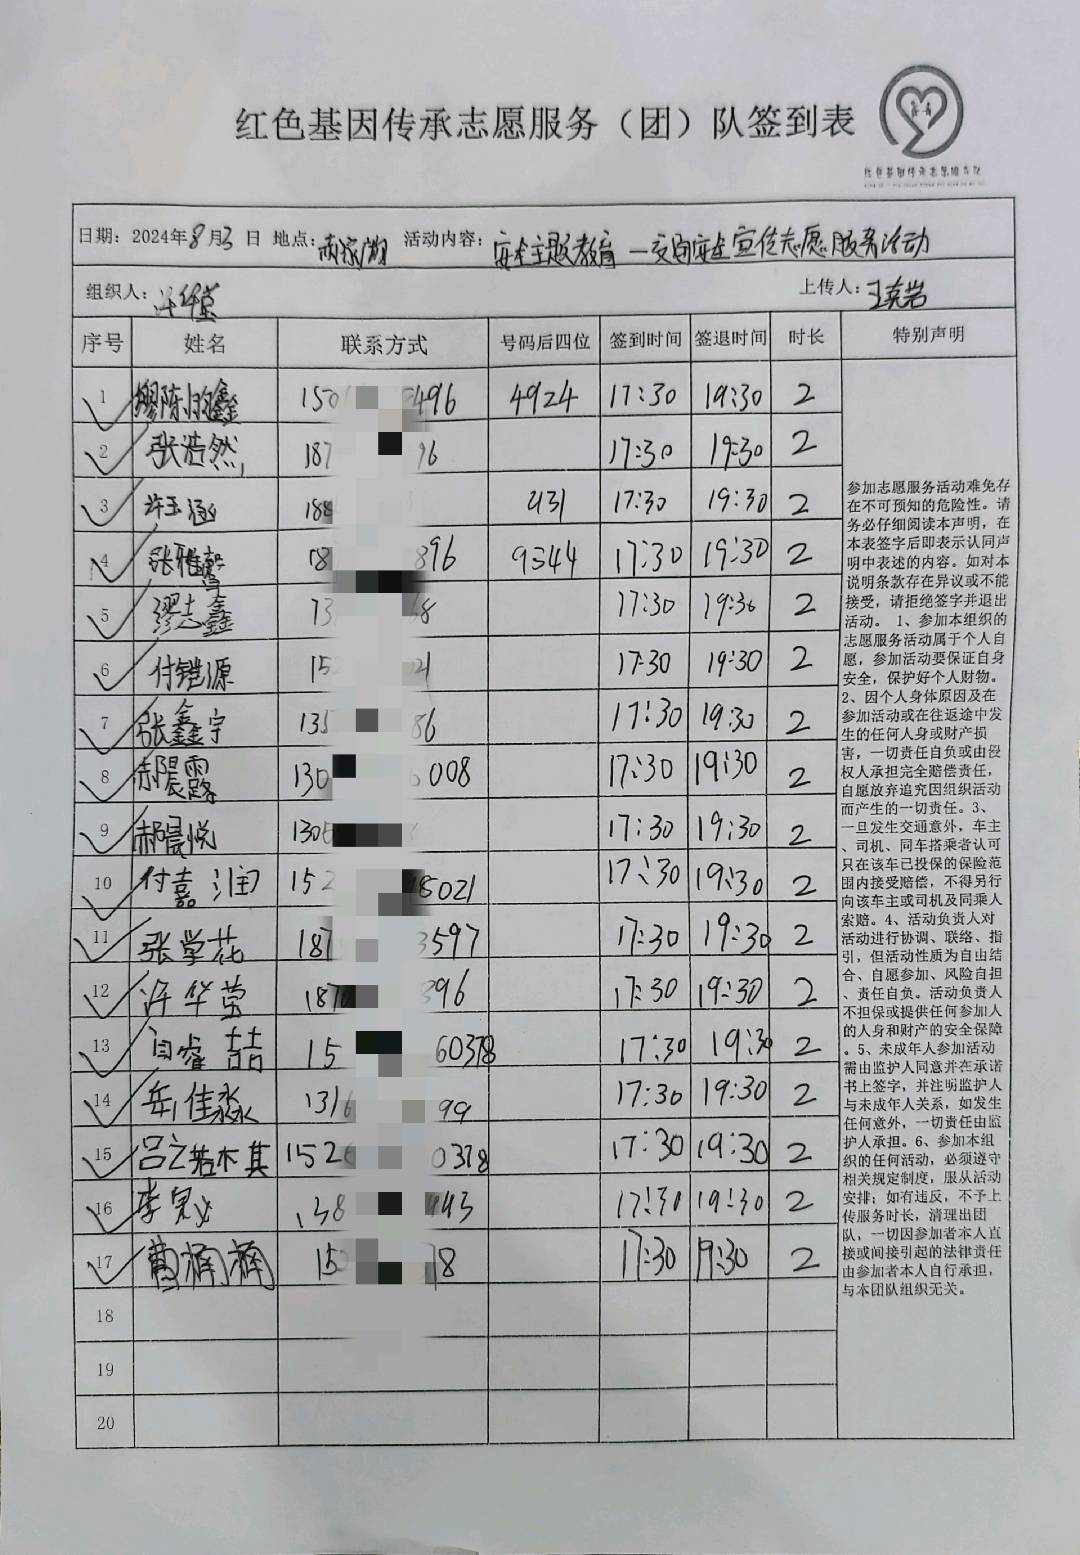 红色基因传承志愿服务（团）队签到表
红色基因传承志愿服务队
日期：2024年8月3日 地点： 活动内容：安全主题教育—交通安全宣传志愿服务活动
组织人：许华莹 上传人：王克岩
序号 姓名 联系方式 号码后四位 签到时间 签退时间 时长 特别声明
1 廖陈 鑫 150 496 4924 17:30 19:30 2
2 张浩然 187 96 17:30 19:30 2
3 许玉涵 188 17:30 19:30 2
4 张雅馨 18 896 9344 17:30 19:30 2
5 廖志鑫 13 8 17:30 19:30 2
6 付锴源 15 21 17:30 19:30 2
7 张鑫宇 135 86 17:30 19:30 2
8 郝晨露 130 008 17:30 19:30 2
9 郝晨悦 130 17:30 19:30 2
10 付嘉润 152 5021 17:30 19:30 2
11 张学花 187 3597 17:30 19:30 2
12 许华莹 187 396 17:30 19:30 2
13 睿喆 15 60378 17:30 19:30 2
14 佳淼 131 99 17:30 19:30 2
15 吕 152 0378 17:30 19:30 2
16 李 138 943 17:30 19:30 2
17 15 78 17:30 19:30 2
18
19
20
参加志愿服务活动难免存
在不可预知的危险性。请
务必仔细阅读本声明，在
本表签字后即表示认同声
明中表述的内容。如对本
说明条款存在异议或不能
接受，请拒绝签字并退出
活动。 1、参加本组织的
志愿服务活动属于个人自
愿，参加活动要保证自身
安全，保护好个人财物。
2、因个人身体原因及在
参加活动或在往返途中发
生的任何人身或财产损
害，一切责任自负或由侵
权人承担完全赔偿责任，
自愿放弃追究因组织活动
而产生的一切责任。3、
一旦发生交通意外，车主
、司机、同车搭乘者认可
只在该车已投保的保险范
围内接受赔偿，不得另行
向该车主或司机及同乘人
索赔。4、活动负责人对
活动进行协调、联络、指
引，但活动性质为自由结
合、自愿参加、风险自担
、责任自负。活动负责人
不担保或提供任何参加人
的人身和财产的安全保障
。5、未成年人参加活动
需由监护人同意并在承诺
书上签字，并注明监护人
与未成年人关系，如发生
任何意外，一切责任由监
护人承担。6、参加本组
织的任何活动，必须遵守
相关规定制度，服从活动
安排；如有违反，不予上
传服务时长，清理出团
队，一切因参加者本人直
接或间接引起的法律责任
由参加者本人自行承担，
与本团队组织无关。